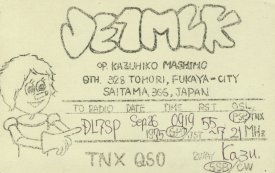 JE1MLK
OP. KAZUHIKO MASHIMO
328 TOMORI, FUKAYA-CITY
SAITAMA, 366, JAPAN
TO RADIO DATE TIME RST QSL
Sep 26 0919 55 PSE TNX
1995 JST 21 MHz
TNX QSO Kazu.
SSB CW